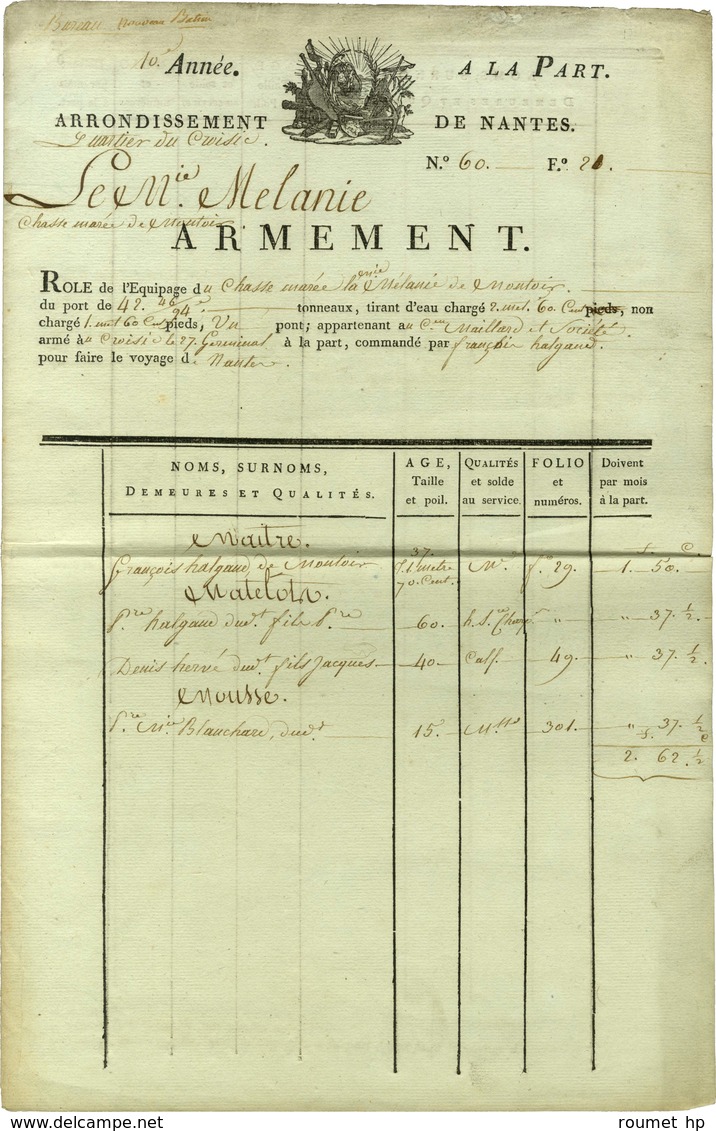 Bureau
10.e Année. A LA PART.
ARRONDISSEMENT DE NANTES.
Quartier du Croisic.
N.º 60. F.º 21.
Le M.ie Melanie
Chasse marée de Montoir
ARMEMENT.
ROLE de l'Equipage du Chasse marée la Mélanie de Montoir.
du port de 42. 46/94.e tonneaux, tirant d'eau chargé 2. met. 60 Cent pieds, non
chargé 1. met 60 Cent pieds, Un pont; appartenant au C.en Maillard et Société
armé au Croisic le 27. Germinal à la part, commandé par françois halgand.
pour faire le voyage de Nantes.
NOMS, SURNOMS,
DEMEURES ET QUALITÉS.
AGE,
Taille
et poil.
QUALITÉS
et solde
au service.
FOLIO
et
numéros.
Doivent
par mois
à la part.
Maitre.
f. c.
François halgand de Montoir 37. 1 metre 70 Cent. M.e f.o 29. 1. 50.
Matelots.
P.re halgand dud.t fils P.re 60. h. S.ce " " 37. ½
Denis hervé dud.t fils Jacques 40. Calf. 49. " 37. ½
Mousse.
P.re M.ie Blanchard, dud.t 15. M. 301. " 37. ½
f. c
2. 62 ½
roumet hp